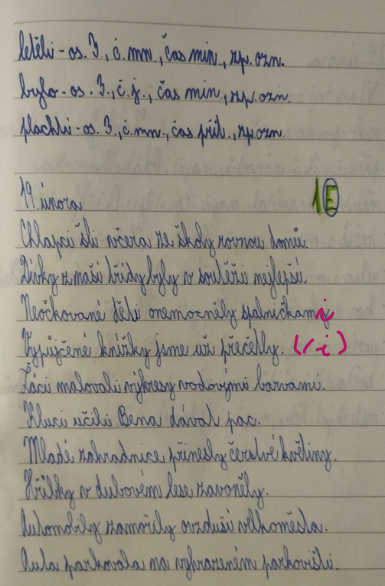 letěli - os. 3., č. mn., čas min., zp. ozn.
bylo - os. 3., č. j., čas min., zp. ozn.
plachtí - os. 3., č. mn., čas přít., zp. ozn.
19. února 1 E
Chlapci šli včera ze školy rovnou domů.
Dívky z naší třídy byly v soutěži nejlepší.
Neočkované děti onemocněly spalničkami
Vypůjčené knížky jsme už přečetly. (/i)
Žáci malovali výkresy vodovými barvami.
Kluci učili Bena dávat pac.
Mladé zahradnice přinesly čerstvé květiny.
Hřibky v dubovém lese zavoněly.
Automobily zamořily ovzduší velkoměsta.
Auta parkovala na vyhrazeném parkovišti.